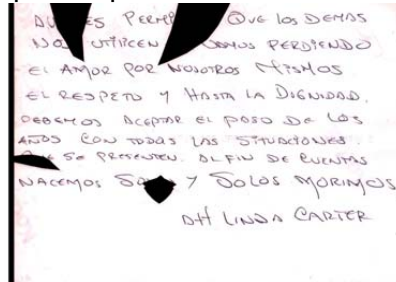 PERMI QUE LOS DEMAS
NOS UTILICEN VAMOS PERDIENDO
EL AMOR POR NOSOTROS MISMOS
EL RESPETO Y HASTA LA DIGNIDAD.
DEBEMOS ACEPTAR EL PASO DE LOS
AÑOS CON TODAS LAS SITUACIONES.
QUE SE PRESENTEN. AL FIN DE CUENTAS
NACEMOS SOLOS Y SOLOS MORIMOS
LINDA CARTER